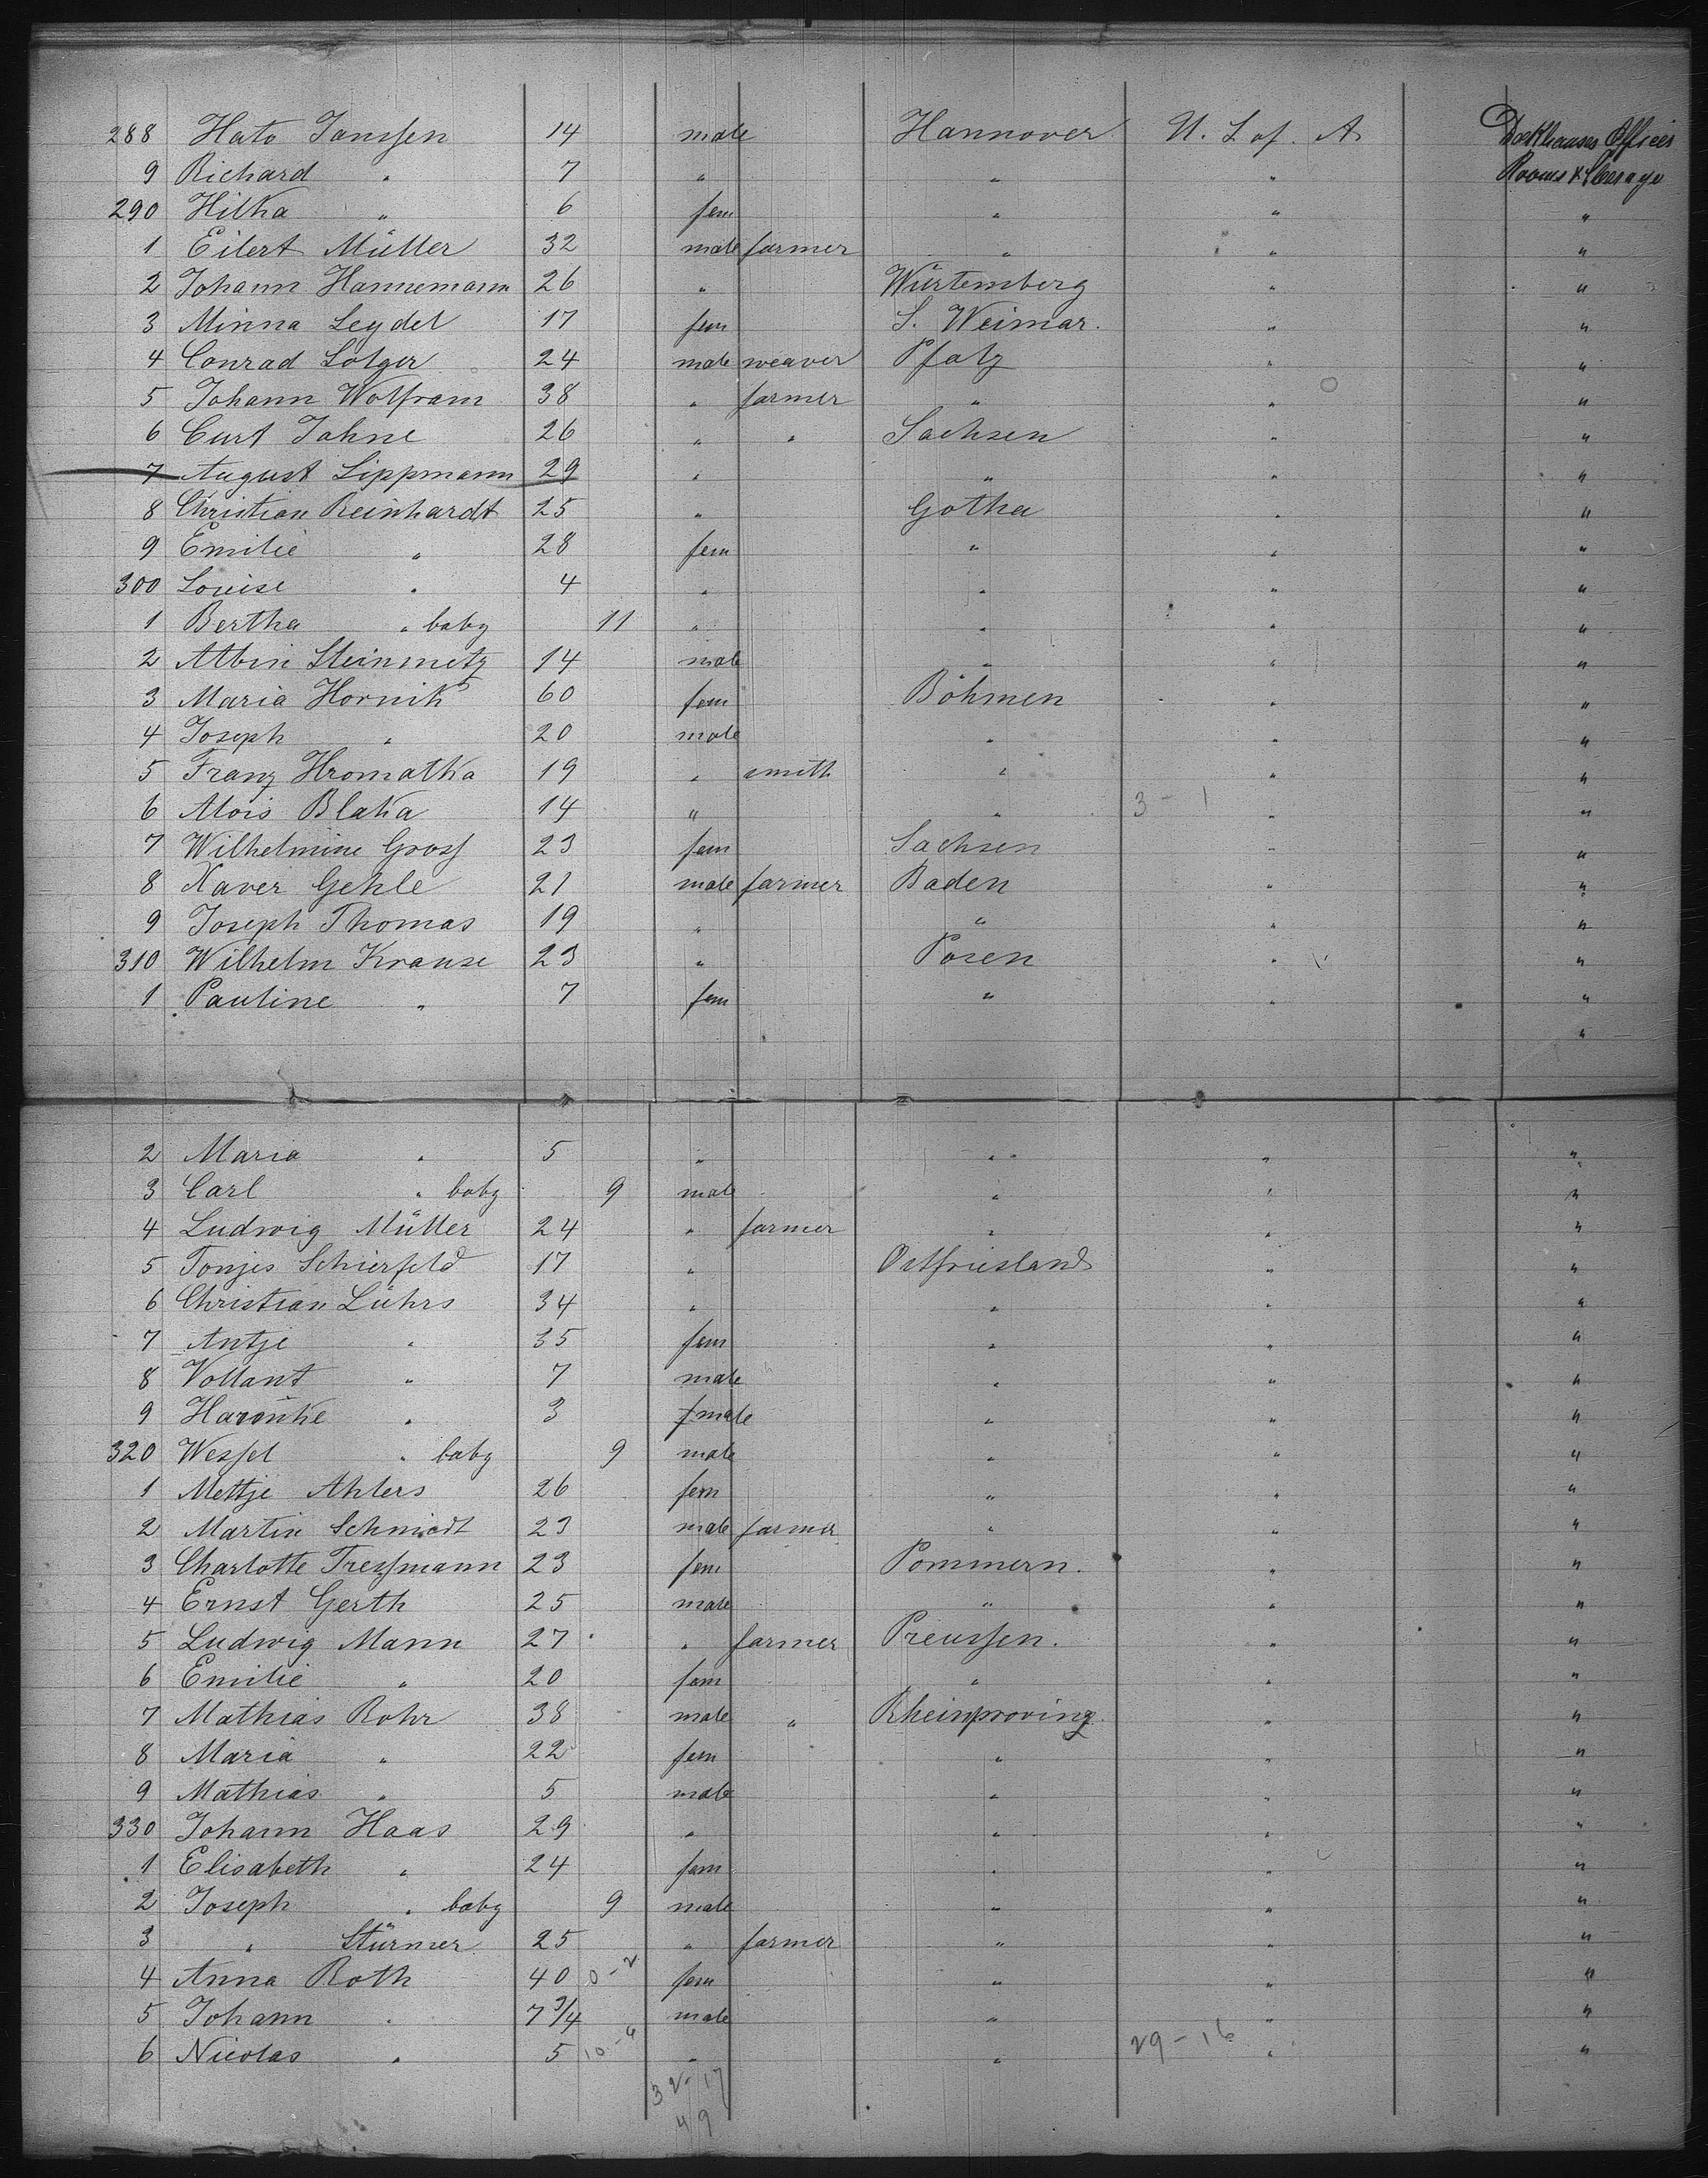 288 Hato Janssen 14 male Hannover U. S. of. A. Deckhouses Officers
9 Richard " 7 " " " Rooms & Steerage
290 Hilka " 6 fem " " "
1 Eilert Müller 32 male farmer " " "
2 Johann Hannemann 26 " Würtemberg " "
3 Minna Leydel 17 fem S. Weimar. " "
4 Conrad Lotger 24 male weaver Pfalz " "
5 Johann Wolfram 38 " farmer " " "
6 Curt Jahne 26 " " Sachsen " "
7 August Lippmann 29 " " " "
8 Christian Reinhardt 25 " Gotha " "
9 Emilie " 28 fem " " "
300 Louise " 4 " " " "
1 Bertha " baby 11 " " " "
2 Albin Steinmetz 14 male " " "
3 Maria Hornik 60 fem Böhmen " "
4 Joseph " 20 male " " "
5 Franz Hromatka 19 " smith " " "
6 Alois Blaka 14 " " 3 - 1 " "
7 Wilhelmine Gross 23 fem Sachsen " "
8 Xaver Gehle 21 male farmer Baden " "
9 Joseph Thomas 19 " " " "
310 Wilhelm Krause 23 " Posen " "
1 Pauline " 7 fem " " "
"
2 Maria " 5 " " " "
3 Carl " baby 9 male " " "
4 Ludwig Müller 24 " farmer " " "
5 Tonjes Schierfeld 17 " Ostfriesland " "
6 Christian Lührs 34 " " " "
7 Antje " 35 fem " " "
8 Vollant " 7 male " " "
9 " 3 fmale " " "
320 Wessel " baby 9 male " " "
1 Mettje Ahlers 26 fem " " "
2 Martin Schmidt 23 male farmer " " "
3 Charlotte Tressmann 23 fem Pommern. " "
4 Ernst Gerth 25 male " " "
5 Ludwig Mann 27 " farmer Preussen. " "
6 Emilie " 20 fem " " "
7 Mathias Rohr 38 male " Rheinprovinz " "
8 Maria " 22 fem " " "
9 Mathias " 5 male " " "
330 Johann Haas 29 " " " "
1 Elisabeth " 24 fem " " "
2 Joseph " baby 9 male " " "
3 " Stürmer 25 " farmer " " "
4 Anna Roth 40 0-2 fem " " "
5 Johann " 7 3/4 male " " "
6 Nicolas " 5 10-6 " " 29-16 " "
32-17
49